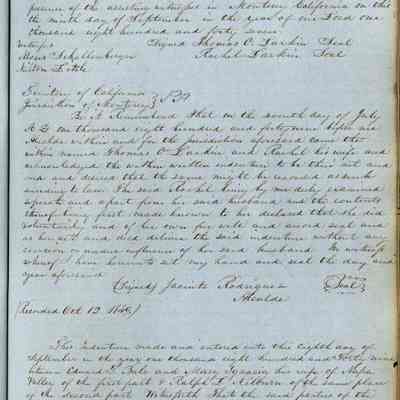 presence of the assisting witness in Monterey California on this
the ninth day of September in the year of our Lord one
thousand eight hundred and forty seven
Witness Signed Thomas O. Larkin Seal
Moses Schallenberger Rachel Larkin Seal
Territory of California
Jurisdiction of Monterey
Be it Remembered that on the seventh day of July
A.D. one thousand eight hundred and forty nine before me
Alcalde within and for the jurisdiction aforesaid came the
within named Thomas O Larkin and Rachel his wife and
acknowledged the within written indenture to be their act and
and desired that the same might be recorded as such
according to law. The said Rachel being by me duly examined
separate and apart from her said husband and the contents
thereof being first made known to her declared that she did
voluntarily and of her own free will and accord seal and
as her act and deed deliver the said indenture without any
coersion or undue influence of her said husband. In witness
whereof I have hereunto set my hand and seal the day and
year aforesaid
(Signed) Jacinto Rodriguez (Seal)
Alcalde
(Recorded Oct 12 1849)
This Indenture made and entered into this eighth day of
September in the year one thousand eight hundred and forty nine
between Edward T. Bale and Maria Ygnacia his wife of Napa
Valley of the first part & Ralph L. Kilburn of the same place
of the second part Witnesseth That the said parties of the